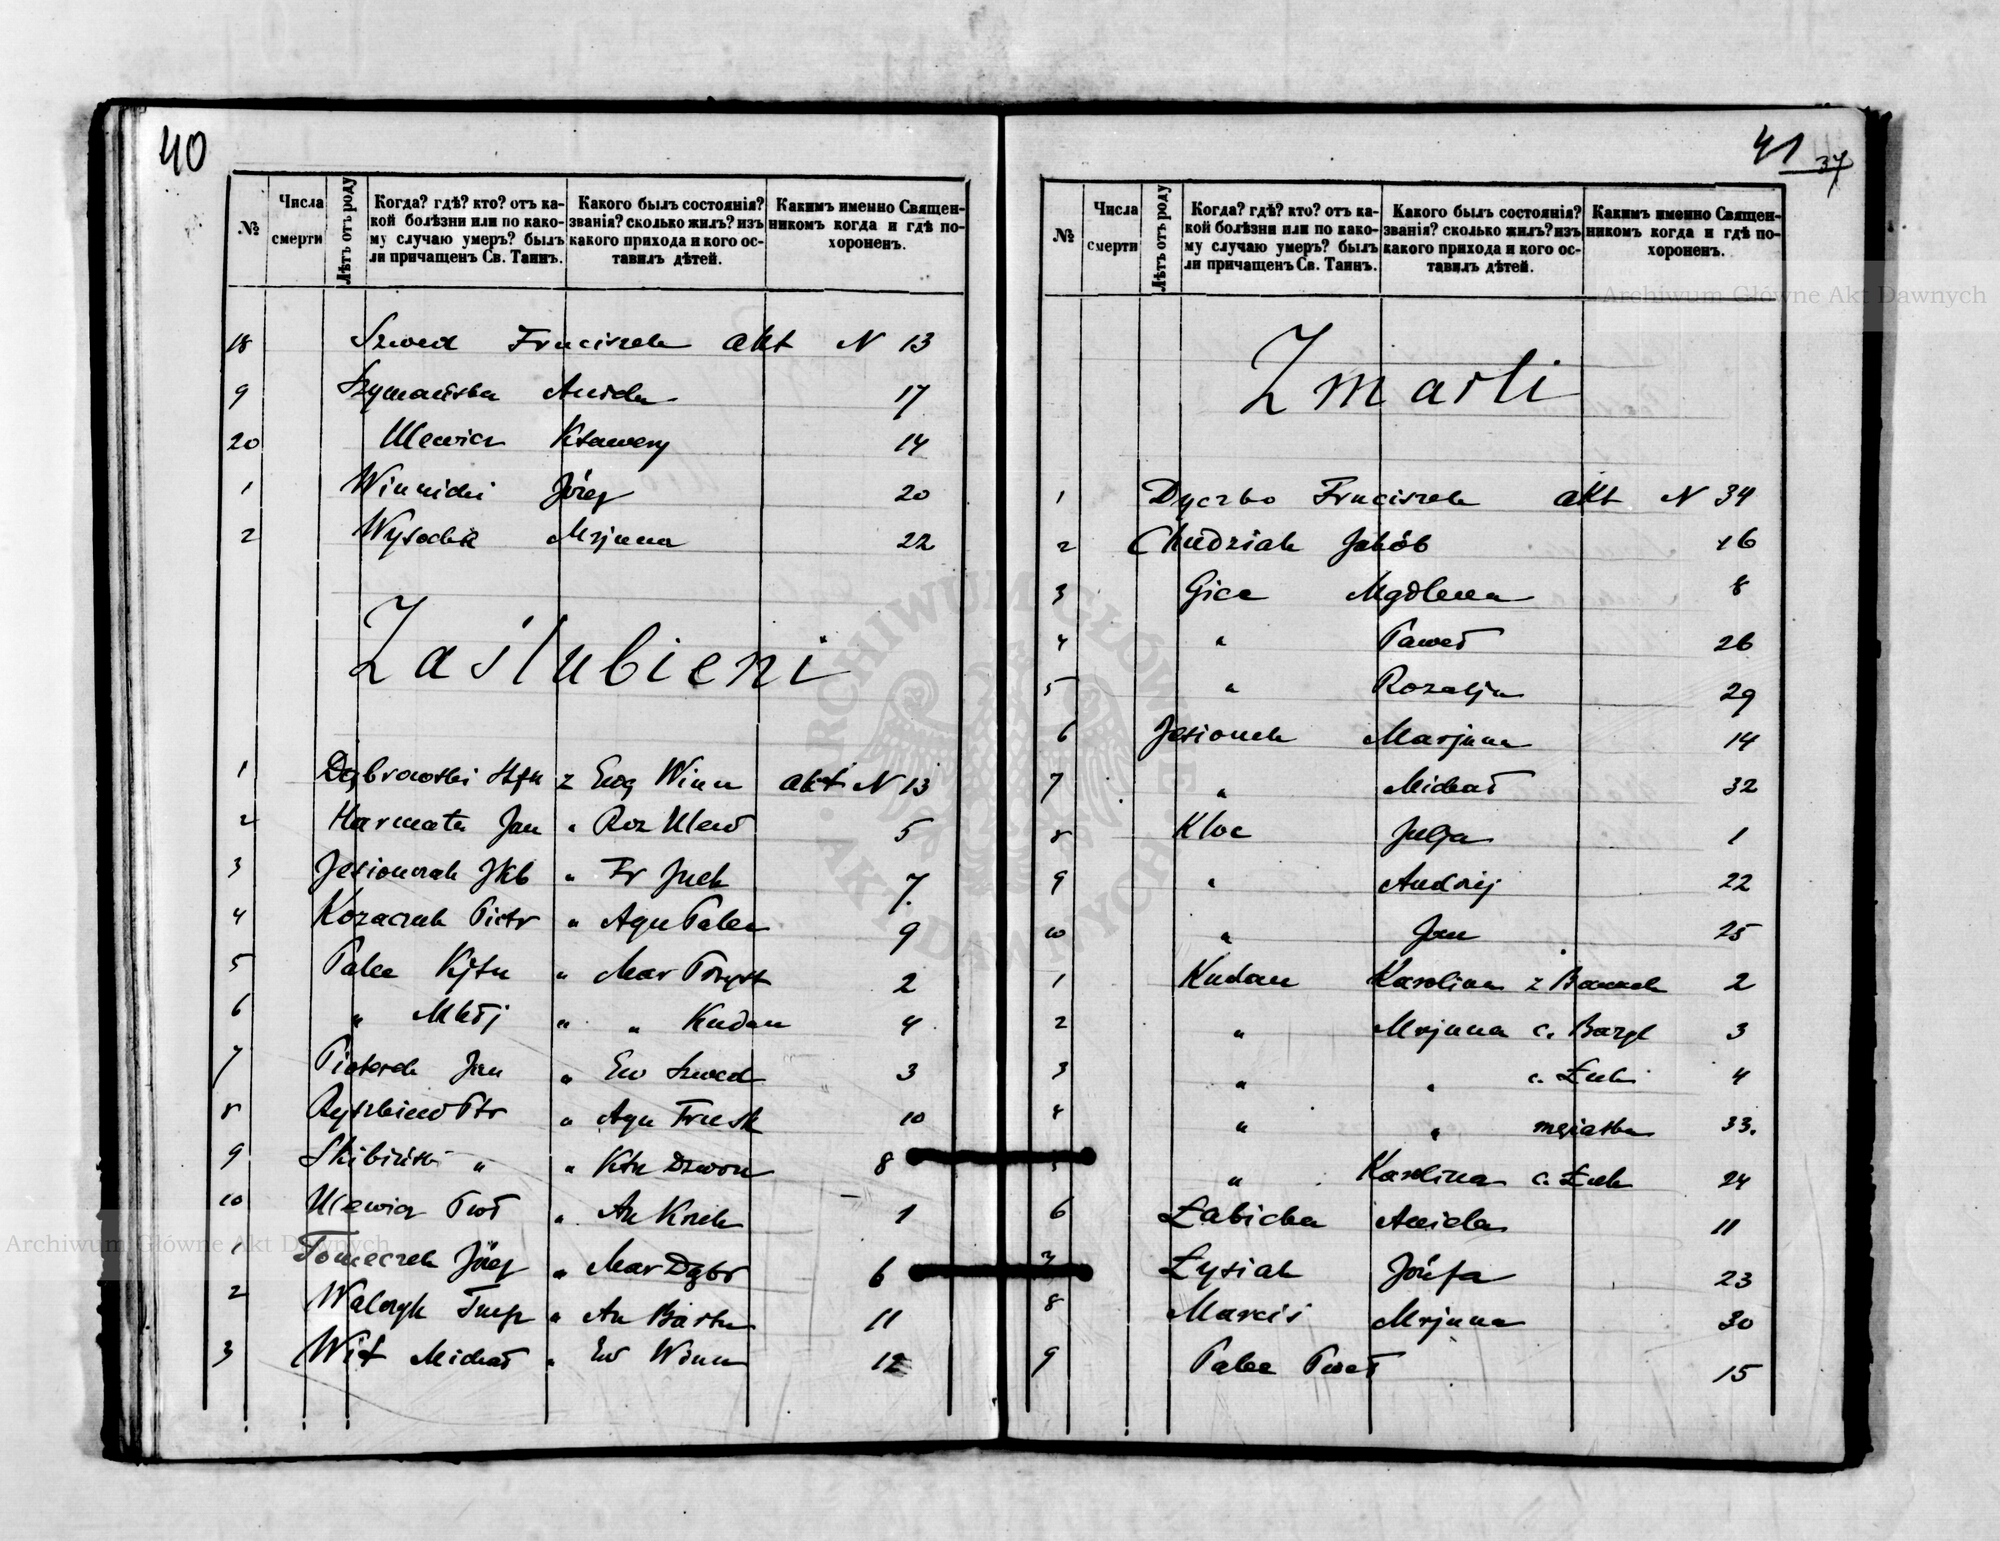 40
№
Числа
смерти
Лѣтъ отъ роду
Когда? гдѣ? кто? отъ ка-
кой болѣзни или по како-
му случаю умеръ? былъ
ли причащенъ Св. Таинъ.
Какого былъ состоянія?
званія? сколько жилъ? изъ
какого прихода и кого ос-
тавилъ дѣтей.
Какимъ именно Священ-
никомъ когда и гдѣ по-
хороненъ.
18 Szwed Franciszek akt N 13
9 Szymańska Aniela 17
20 Ulewicz Ksawery 14
1 Winnicki Józef 20
2 Wysocka Mrjanna 22
Zaślubieni
1 Dąbrowski Stfn z Eug Winn akt N 13
2 Harmata Jan " Roz Ulew 5
3 Jesionczak Jkb " Fr Juch 7
4 Kozaczuk Piotr " Agn Palen 9
5 Palec Kjtn " Mar Przyst 2
6 " Mkłj " " Kudan 4
7 Jan " Ew Szwed 3
8 Ptr " Agn 10
9 Skibiński " " Ktn Dzwon 8
10 Ulewicz Pwł " An 1
1 Tomeczek Józef " Mar Dąbr 6
2 " An Bartn 11
3 Wit Michał " Ew Winn 12
41
37
№
Числа
смерти
Лѣтъ отъ роду
Когда? гдѣ? кто? отъ ка-
кой болѣзни или по како-
му случаю умеръ? былъ
ли причащенъ Св. Таинъ.
Какого былъ состоянія?
званія? сколько жилъ? изъ
какого прихода и кого ос-
тавилъ дѣтей.
Какимъ именно Священ-
никомъ когда и гдѣ по-
хороненъ.
Zmarli
1 Dyczko Franciszek akt N 34
2 Chudziak Jakób 16
3 Gica Mgdlena 8
4 " Paweł 26
5 " Rozalja 29
6 Jesionek Marjana 14
7 " Michał 32
8 Kloc Julja 1
9 " Andrzej 22
10 " Jan 25
1 Kudan Karolina z 2
2 " Mrjanna c. Bazyl 3
3 " " c. Łuk 4
4 " " mężatka 33.
5 " Karolina c. Łuk 24
6 Łabicka Aniela 11
7 Łysiak Józefa 23
8 Marciś Mrjana 30
9 Palec Paweł 15
Archiwum Główne Akt Dawnych
Archiwum Główne Akt Dawnych
ARCHIWUM GŁÓWNE AKT DAWNYCH